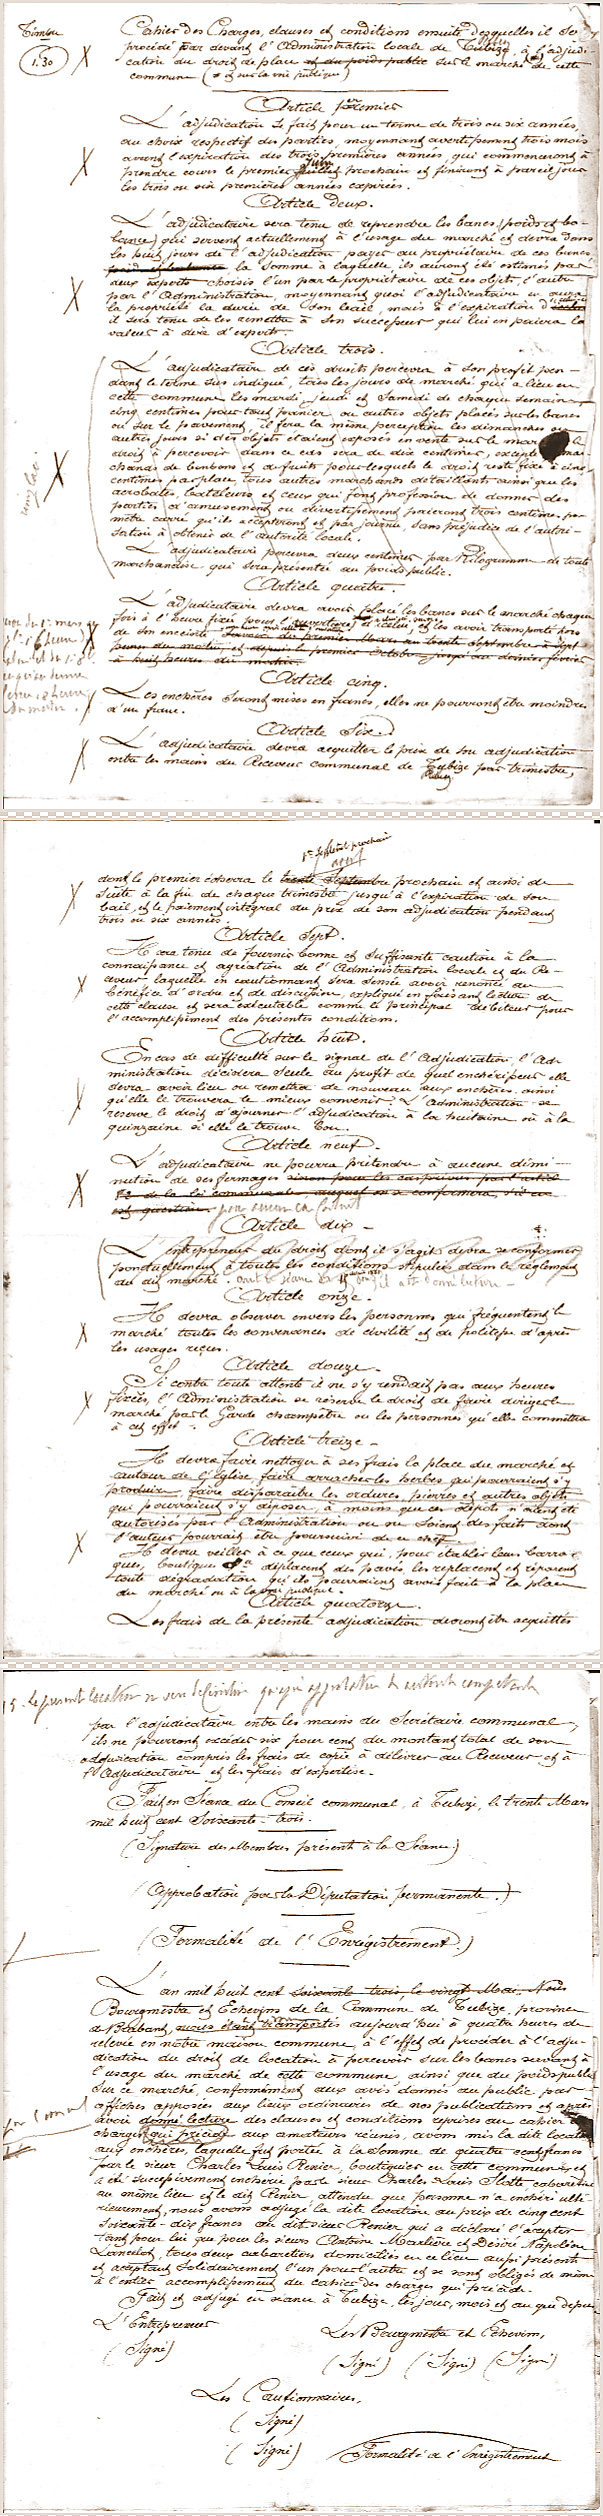 Timbre
1.30
Cahier des Charges, clauses et conditions ensuite desquelles il sera
procédé par devant l'Administration locale de Tubize, à l'adjudi-
cation du droit de place et du poids public sur le marché de cette
commune (et sur la voie publique)
Article premier
L'adjudication se fait pour un terme de trois ou six années,
au choix respectif des parties, moyennant avertissement trois mois
avant l'expiration des trois premières années, qui commenceront à
prendre cours le premier Juillet prochain et finiront à pareil jour
les trois ou six premières années expirées.
Article deux.
L'adjudicataire sera tenu de reprendre les bancs (poids et ba-
lance) qui servent actuellement à l'usage du marché et devra dans
les huit jours de l'adjudication payer au propriétaire de ces bancs,
poids et balance la somme à laquelle ils auront été estimés par
deux experts choisis l'un par le propriétaire de ces objets, l'autre
par l'Administration, moyennant quoi l'adjudicataire en aura
la propriété la durée de son bail, mais à l'expiration
il sera tenu de les remettre à son successeur qui lui en paiera la
valeur à dire d'experts.
Article trois.
L'adjudicataire de ces droits percevra à son profit pen-
dant le terme sus indiqué, tous les jours de marché qui a lieu en
cette commune les mardi, jeudi et samedi de chaque semaine,
cinq centimes pour tout panier ou autres objets placés sur les bancs
ou sur le pavement, il fera la même perception les dimanches ou
autres jours si des objets étaient exposés en vente sur le marché, le
droit à percevoir dans ce cas sera de dix centimes, excepté mar-
chands de bonbons et de fruits pour lesquels le droit reste fixé à cinq
centimes par place, tous autres marchands détaillants ainsi que les
acrobates, bateleurs et ceux qui font profession de donner des
parties d'amusement ou divertissement paieront trois centimes par
mètre carré qu'ils occuperont et par journée, sans préjudice de l'autori-
sation à obtenir de l'autorité locale.
L'adjudicataire percevra deux centimes par Kilogramme de toute
marchandise qui sera présentée au poids public.
Article quatre.
L'adjudicataire devra avoir placé les bancs sur le marché chaque
fois à l'heure fixée pour l'ouverture et les avoir transportés hors
de son enceinte savoir du premier Mars au trente Septembre à sept
heures du matin, et depuis le premier Octobre jusqu'au dernier février
à huit heures du matin.
Article cinq.
Les enchères seront mises en francs, elles ne pourront être moindres
d'un franc.
Article Six
L'adjudicataire devra acquitter le prix de son adjudication
entre les mains du Receveur communal de Tubize par trimestre,
dont le premier écherra le trente Septembre prochain et ainsi de
suite à la fin de chaque trimestre jusqu'à l'expiration de son
bail, et le paiement intégral du prix de son adjudication pendant
trois ou six années.
Article Sept.
Il sera tenu de fournir bonne et suffisante caution à la
connaissance et agréation de l'Administration locale et du Re-
ceveur laquelle en cautionnant sera censée avoir renoncé au
bénéfice d'ordre et de discussion, expliqué en faisant lecture de
cette clause et sera exécutable comme le principal débiteur pour
l'accomplissement des présentes conditions.
Article huit.
En cas de difficulté sur le signal de l'Adjudication, l'Ad-
ministration décidera seule au profit de quel enchérisseur elle
devra avoir lieu ou remettra de nouveau aux enchères ainsi
qu'elle le trouvera le mieux convenir. L'Administration se
réserve le droit d'ajourner l'adjudication à la huitaine ou à la
quinzaine si elle le trouve bon.
Article neuf.
L'adjudicataire ne pourra prétendre à aucune dimi-
nution de ses fermages sinon pour les cas prévus par l'article
de la loi communale auquel on se conformera, s'il en
est question.
Article dix -
L'entrepreneur du droit dont il s'agit devra se conformer
ponctuellement à toutes les conditions stipulées dans le règlement
du dit marché.
Article onze.
Il devra observer envers les personnes qui fréquentent le
marché toutes les convenances de civilité et de politesse d'après
les usages reçus.
Article douze.
Si contre toute attente il ne s'y rendait pas aux heures
fixées, l'Administration se réserve le droit de faire diriger le
marché par le Garde champêtre ou les personnes qu'elle commettra
à cet effet.
Article treize -
Il devra faire nettoyer à ses frais la place du marché et
autour de l'Eglise, faire arracher les herbes qui pourraient s'y
produire, faire disparaître les ordures, pierres et autres objets
qui pourraient s'y déposer, à moins que ces dépôts n'aient été
autorisés par l'Administration ou ne soient des faits dont
l'auteur pourrait être poursuivi de ce chef.
Il devra veiller à ce que ceux qui, pour établir leurs barra-
ques, boutiques déplacent des pavés, les replacent et réparent
toute dégradation qu'ils pourraient avoir faite à la place
du marché ou à la voie publique.
Article quatorze.
Les frais de la présente adjudication devront être acquittés
15. La présente location ne sera définitive qu'après approbation de l'autorité compétente
par l'adjudicataire entre les mains du Secrétaire communal,
ils ne pourront excéder six pour cent du montant total de son
adjudication compris les frais de copie à délivrer au Receveur et à
l'Adjudicataire et les frais d'expertise.
Fait en Séance du Conseil communal, à Tubize, le trente Mars
mil huit cent soixante-trois.
(Signature des Membres présents à la Séance)
(Approbation par la Députation permanente.)
(Formalité de l'Enregistrement.)
L'an mil huit cent soixante trois, le vingt Mai, Nous
Bourgmestre et Echevins de la Commune de Tubize, province
de Brabant, nous étant transportés aujourd'hui à quatre heures de
relevée en notre maison commune, à l'effet de procéder à l'adju-
dication du droit de location à percevoir sur les bancs servant à
l'usage du marché de cette commune, ainsi que du poids public
sur ce marché, conformément aux avis donnés au public par
affiches apposées aux lieux ordinaires de nos publications et après
avoir donné lecture des clauses et conditions reprises au cahier des
charges qui précède aux amateurs réunis, avons mis la dite location
aux enchères, laquelle fut portée à la somme de quatre cents francs
par le sieur Charles Louis Renier, boutiquier en cette commune et
a été successivement enchérie par le sieur Charles Louis Flotte, cabaretier
au même lieu et le dit Renier attendu que personne n'a enchéri ulté-
rieurement, nous avons adjugé la dite location au prix de cinq cent
soixante-dix francs au dit sieur Renier qui a déclaré l'accepter
tant pour lui que pour les sieurs Antoine Marlière et Désiré Napoléon
Lancelot, tous deux cabaretiers domiciliés en ce lieu aussi présents
et acceptant solidairement l'un pour l'autre et se sont obligés de même
à l'entier accomplissement du cahier des charges qui précède.
Fait et adjugé en séance à Tubize, les jour, mois et an que dessus
L'Entrepreneur
Les Bourgmestre et Echevins,
(Signé)
(Signé) (Signé) (Signé)
Les Cautionnaires,
(Signé)
(Signé)
Formalité de l'Enregistrement